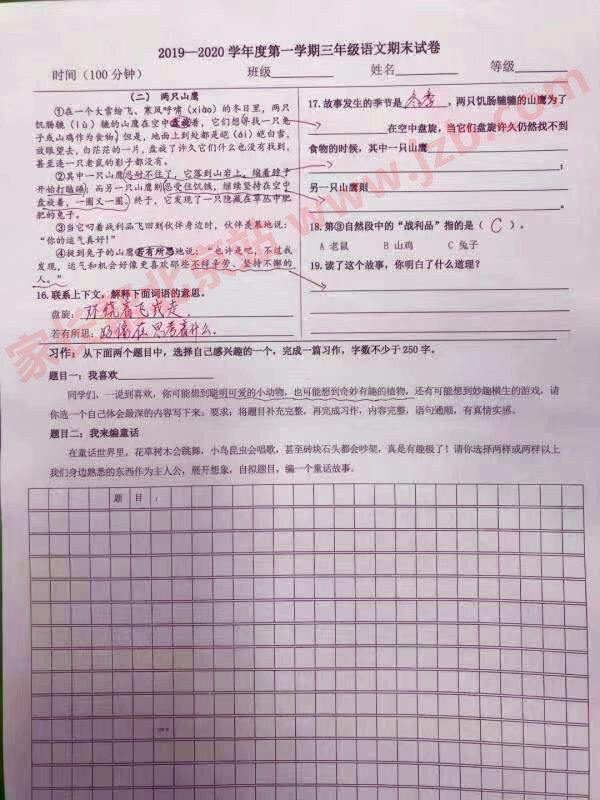 2019—2020学年度第一学期三年级语文期末试卷
时间（100分钟） 班级 姓名 等级
（二） 两只山鹰
①在一个大雪纷飞、寒风呼啸（xiào）的冬日里，两只
饥肠辘（lù）辘的山鹰在空中盘旋着，它们想寻找一只兔
子或山鸡作为食物。但是，地面上到处都是皑（ái）皑白雪，
放眼望去，白茫茫的一片，盘旋了许久它们什么也没有找到，
甚至连一只老鼠的影子都没有。
②其中一只山鹰忍耐不住了，它落到山岩上，缩着脖子
开始打瞌睡；而另一只山鹰则忍受住饥饿，继续坚持在空中
盘旋着，一圈又一圈。终于，它发现了一只隐藏在草丛中肥
肥的兔子。
③当它叼着战利品飞回到伙伴身边时，伙伴羡慕地说：
“你的运气真好！”
④捉到兔子的山鹰若有所思地说：“也许是吧，不过我
发现，运气和机会好像更喜欢那些不辞辛劳、坚持不懈的
人。”
16.联系上下文，解释下面词语的意思。
盘旋：环绕着飞或走
若有所思：好像在思考着什么.
17.故事发生的季节是 冬季 ，两只饥肠辘辘的山鹰为了
在空中盘旋，当它们盘旋许久仍然找不到
食物的时候，其中一只山鹰
；
另一只山鹰则
。
18.第③自然段中的“战利品”指的是（ C ）。
A 老鼠 B 山鸡 C 兔子
19.读了这个故事，你明白了什么道理？
习作：从下面两个题目中，选择自己感兴趣的一个，完成一篇习作，字数不少于250字。
题目一：我喜欢
同学们，一说到喜欢，你可能想到聪明可爱的小动物，也可能想到奇妙有趣的植物，还有可能想到妙趣横生的游戏，请
你选一个自己体会最深的内容写下来。要求：将题目补充完整，再完成习作，内容完整，语句通顺，有真情实感。
题目二：我来编童话
在童话世界里，花草树木会跳舞，小鸟昆虫会唱歌，甚至砖块石头都会吵架，真是有趣极了！请你选择两样或两样以上
我们身边熟悉的东西作为主人公，展开想象，自拟题目，编一个童话故事。
题目：
www.jzb.com